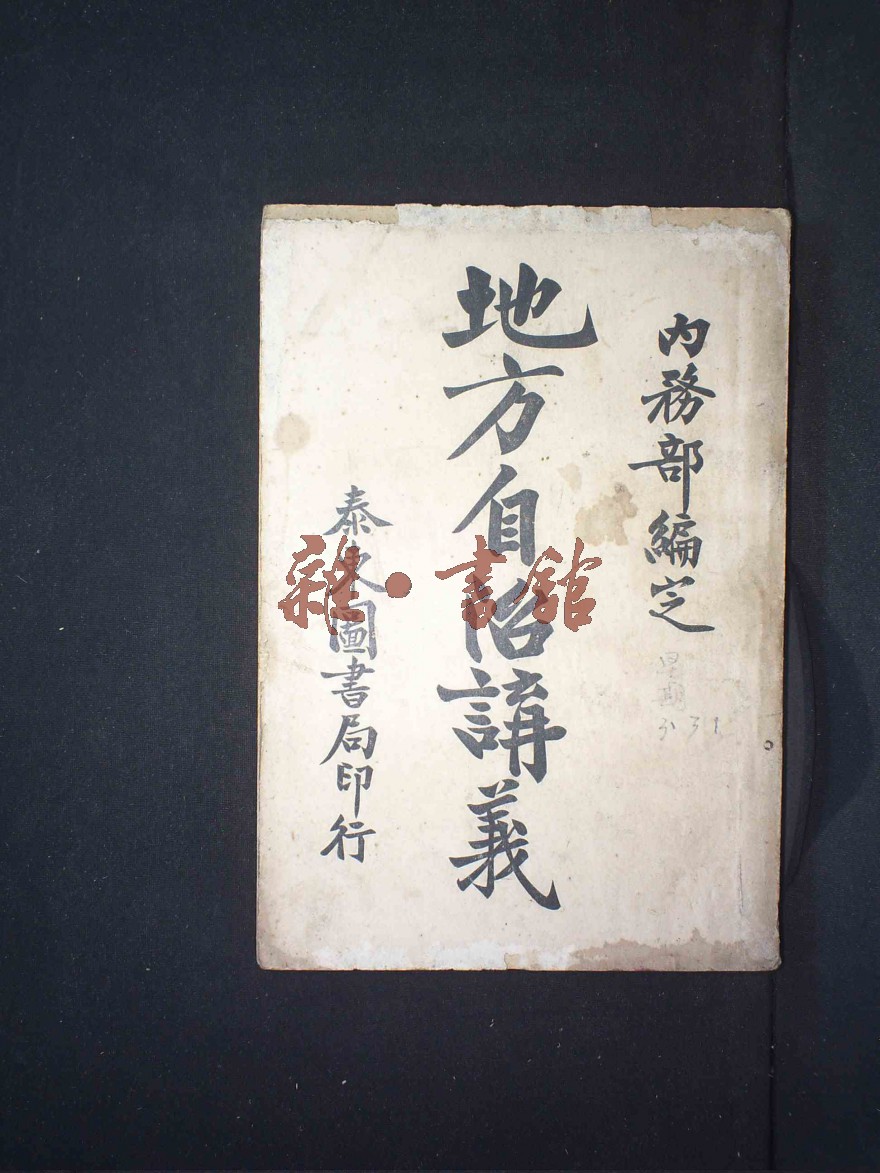 内務部編定
地方自治講義
泰東圖書局印行
雜·書館